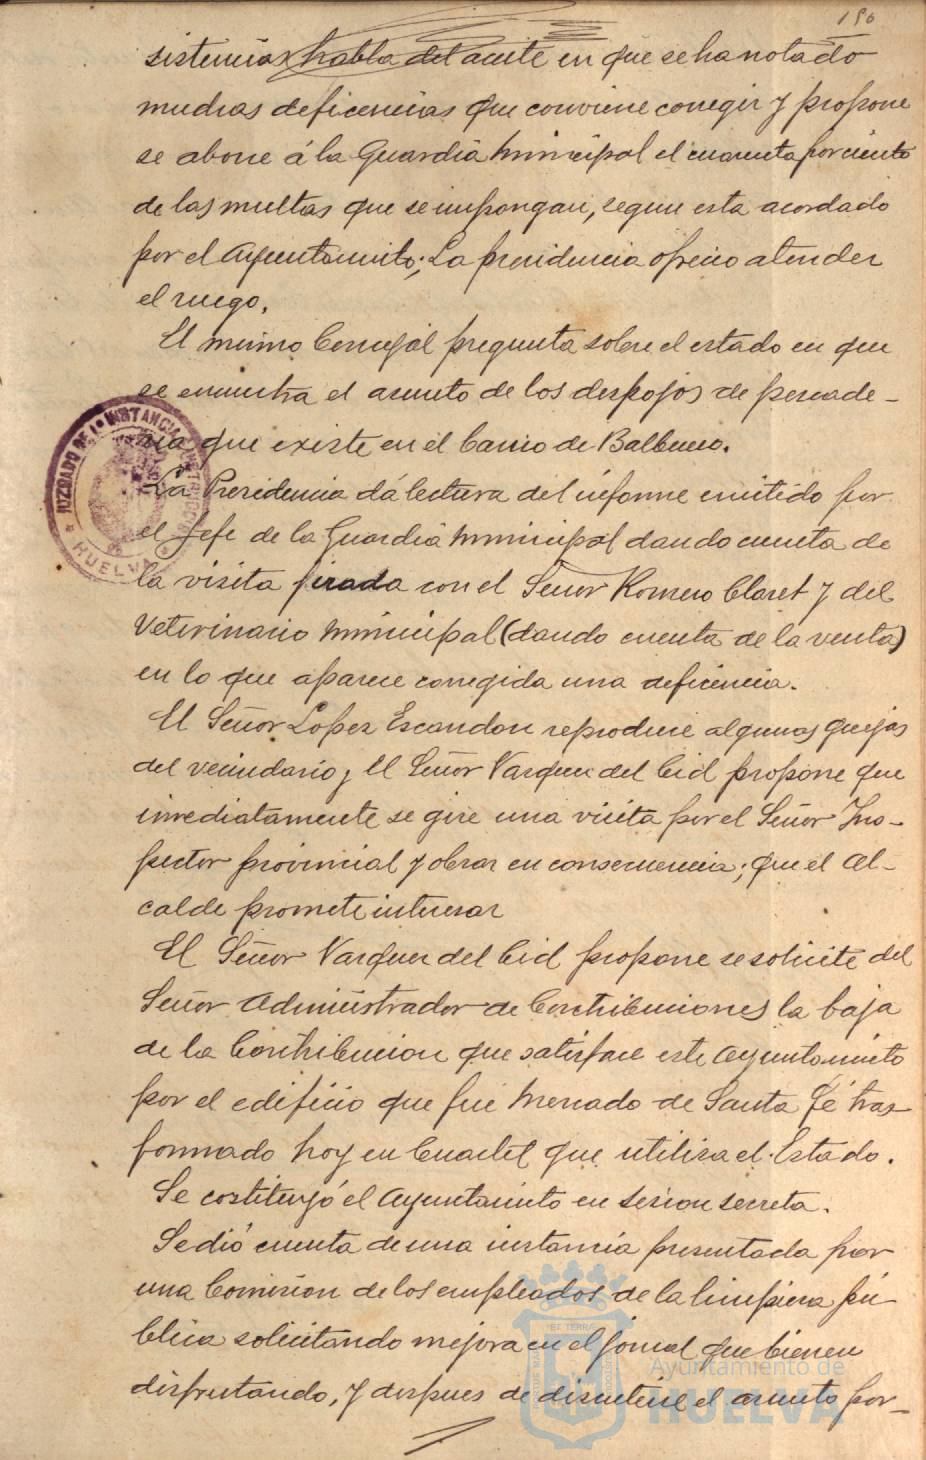 190
sistencias habla del aceite en que se ha notado
muchas deficencias que conviene corregir y propone
se abone á la Guardia Municipal el cuarenta por ciento
de las multas que se impongan, segun esta acordado
por el Ayuntamiento; La presidencia ofrecio atender
el ruego.
El mismo Concejal pregunta sobre el estado en que
se encuentra el asunto de los despojos de pescade-
ria que existe en el Barrio de Balbueno.
La Presidencia dá lectura del informe emitido por
el Jefe de la Guardia Municipal dando cuenta de
la visita jirada con el Señor Romero Claret y del
Veterinario Municipal (dando cuenta de la venta)
en lo que aparece corregida una deficencia.
El Señor Lopez Escandon reproduce algunas quejas
del vecindario y El Señor Vazquez del Cid propone que
inmediatamente se gire una visita por el Señor Ins-
pector provincial y obrar en consecuencia; que el Al-
calde promete interesar
El Señor Vazquez del Cid propone se solicite del
Señor Administrador de Contribuciones la baja
de la Contribucion que satisface este Ayuntamiento
por el edificio que fue Mercado de Santa Fé tras-
formado hoy en Cuartel que utiliza el Estado.
Se costituyó el Ayuntamiento en sesion secreta.
Se dió cuenta de una instancia presentada por
una Comision de los empleados de la limpieza pú-
blica solicitando mejora en el jornal que bienen
disfrutando, y despues de discutirse el asunto por-
JUZGADO DE 1ª INSTANCIA E INSTRUCCION
HUELVA
Ayuntamiento de
HUELVA